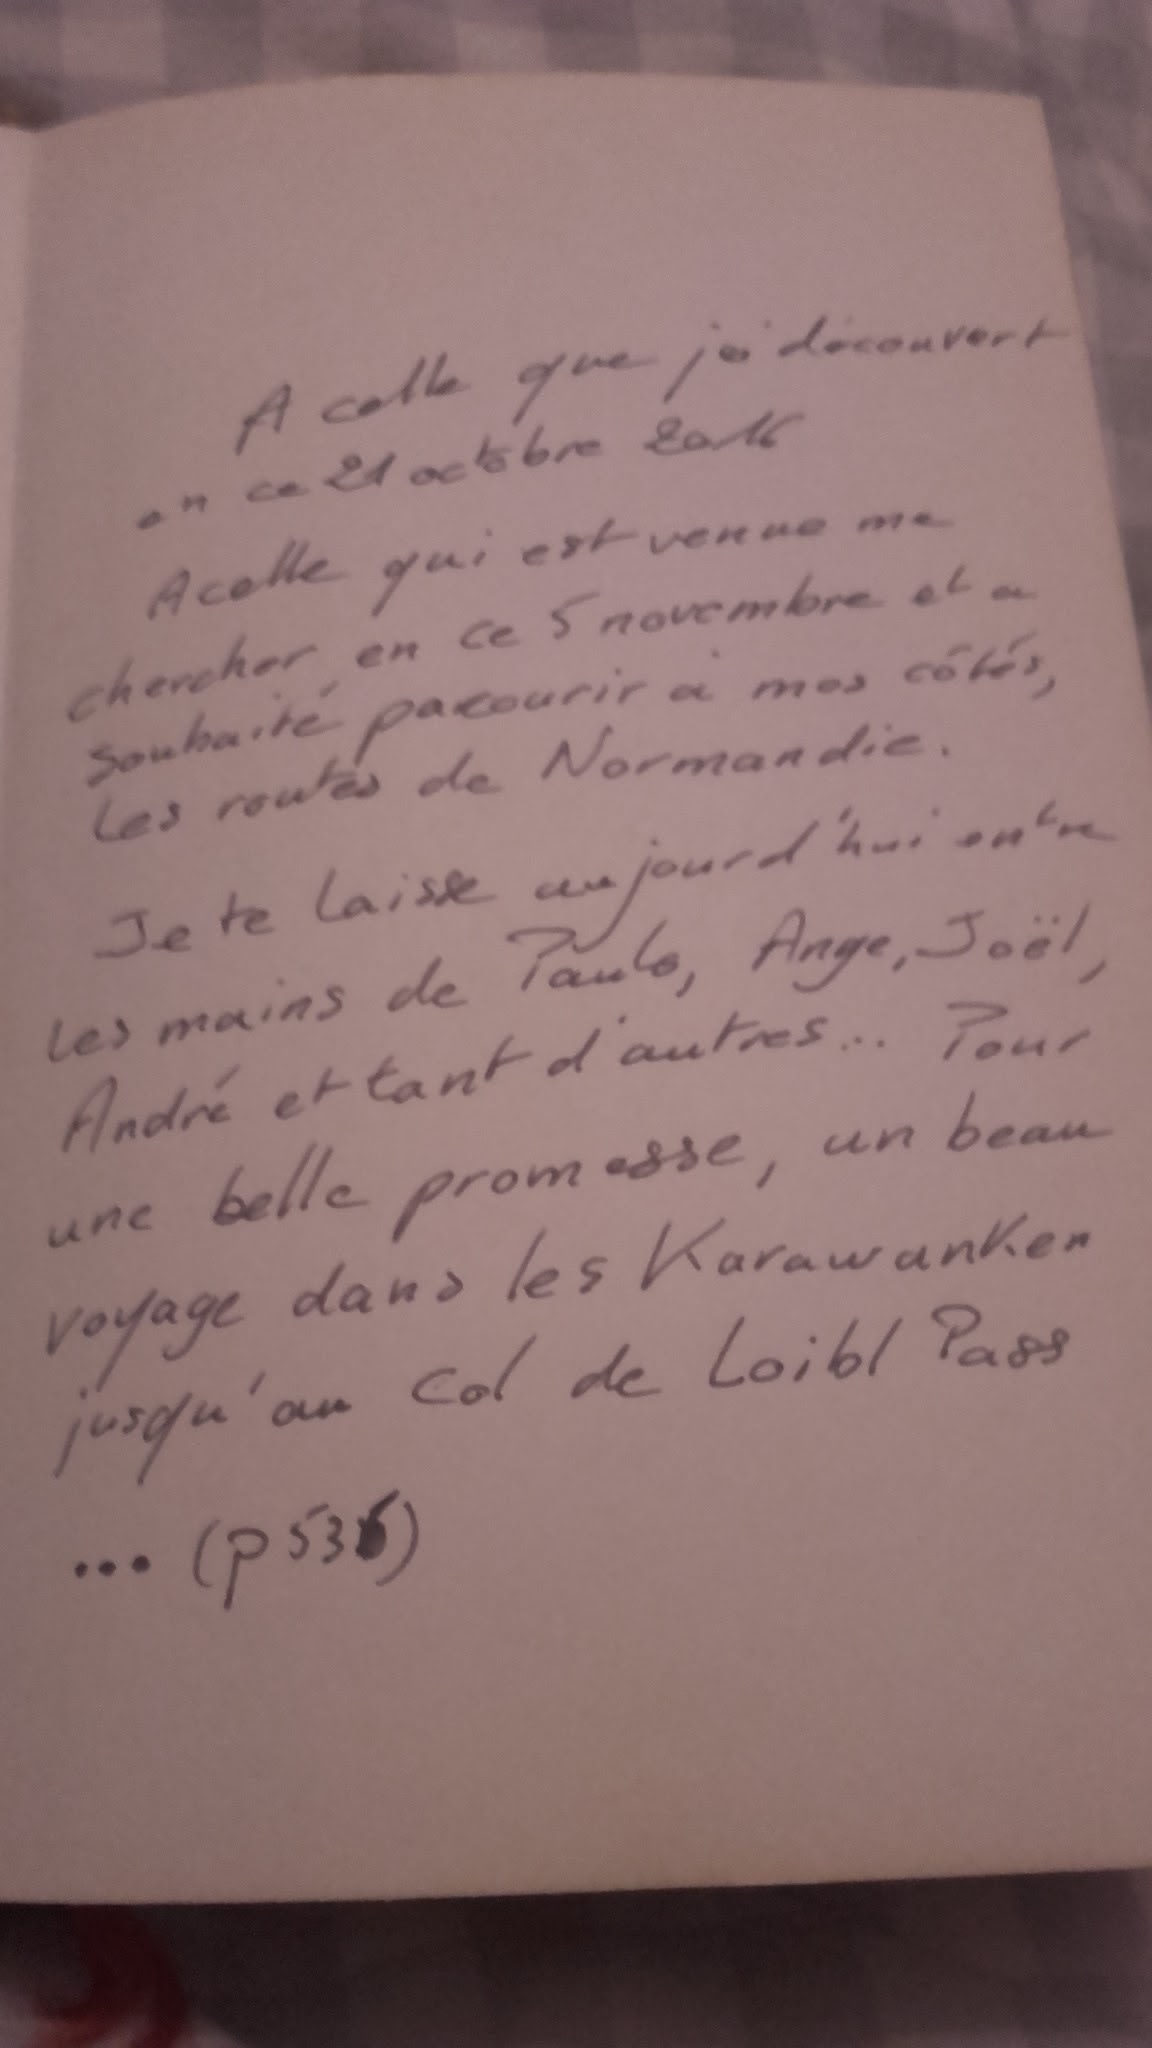 A celle que j'ai découvert
en ce 21 octobre 2016
A celle qui est venue me
chercher en ce 5 novembre et a
souhaité parcourir à mes côtés,
les routes de Normandie.
Je te laisse aujourd'hui entre
les mains de Paulo, Ange, Joël,
André et tant d'autres... Pour
une belle promesse, un beau
voyage dans les Karawanken
jusqu'au col de Loibl Pass
... (p 536)